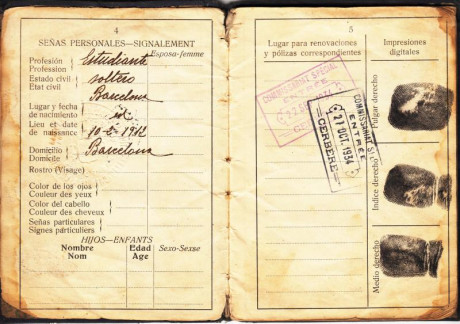 4
SEÑAS PERSONALES—SIGNALEMENT
Esposa-femme
Profesión
Profession
Estudiante
Estado civil
Etat civil
soltero
Barcelona
Lugar y fecha
de nacimiento
Lieu et date
de naissance
10-5-1912
Domicilio
Domicile
Barcelona
Rostro (Visage)
Color de los ojos
Couleur des yeux
Color del cabello
Couleur des cheveux
Señas particulares
Signes particuliers
HIJOS—ENFANTS
Nombre Edad Sexo-Sexse
Nom Age
5
Lugar para renovaciones
y pólizas correspondientes
Impresiones
digitales
COMMISSARIAT SPECIAL
ENTRÉE
COMMISSARIAT
ENTRÉE
21 OCT. 1934
CERBERE
Pulgar derecho
Indice derecho
Medio derecho